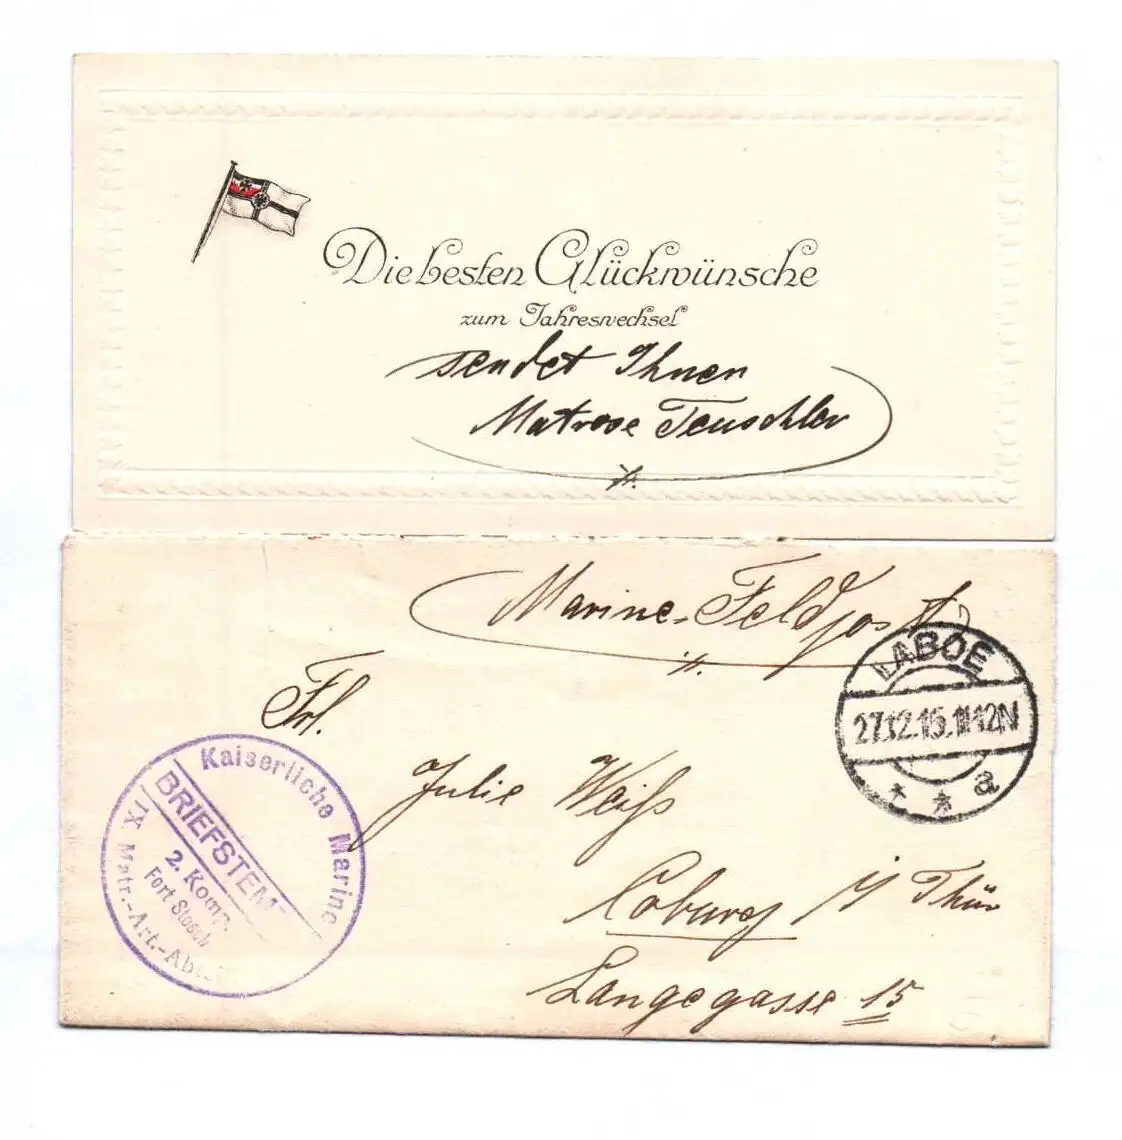 Die besten Glückwünsche
zum Jahreswechsel
sendet Ihnen
Matrose Teuschler
Marine-Feldpost
LABOE
27.12.15.11-12N
* * a
Frl.
Julie Weiß
Coburg i/ Thür
Langegasse 15
Kaiserliche Marine
BRIEFSTEM
2. Komp.
Fort Stosch
IX. Matr.-Art.-Abt.